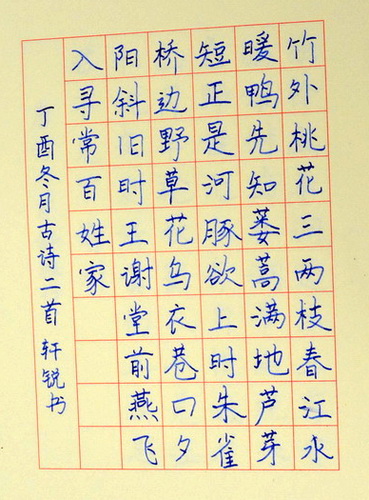 竹外桃花三两枝春江水
暖鸭先知蒌蒿满地芦芽
短正是河豚欲上时朱雀
桥边野草花乌衣巷口夕
阳斜旧时王谢堂前燕飞
入寻常百姓家
丁酉冬月古诗二首轩锐书